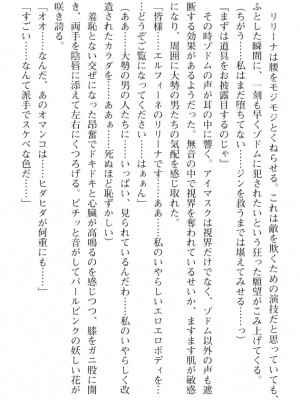 リリーナは腰をモジモジとくねらせる。これは敵を欺くための演技だと思っていても、
ふとした瞬間に、一刻も早くゾドムに犯されたいという狂った願望がこみ上げてくる。
(ちがう……私はまだ堕ちてない……ジンを救うまでは堪えてみせる……っ)
『まずは道具をお披露目するのじゃ』
その時ゾドムの声が耳の中に響く。アイマスクは視界だけでなく、ゾドム以外の声も遮
断する効果があるようだった。無音の中で視界を奪われているせいか、ますます肌が敏感
になり、周囲に大勢の男たちの気配を感じ取れた。
「皆様……エルフィーネのリリーナです……ああ……私のいやらしいエロエロボディを…
…どうぞご覧になってください……はぁぁん」
(ああ……大勢の男の人たちに……いっぱい、見られているんだわ……私のいやらしく改
造されたカラダを……ああぁ……死ぬほど恥ずかしい)
羞恥とない交ぜになった昂奮でドキドキと心臓が高鳴るのを感じつつ、膝をガニ股に開
き、両手を陰唇に添えて左右にくつろげる。ピチッと音がしてパールピンクの妖しい花が
咲き誇る。
「オオ……なんだ、あのオマンコは……ヒダヒダが何重にも……」
「すごい……なんて派手でスケベな色だ……」